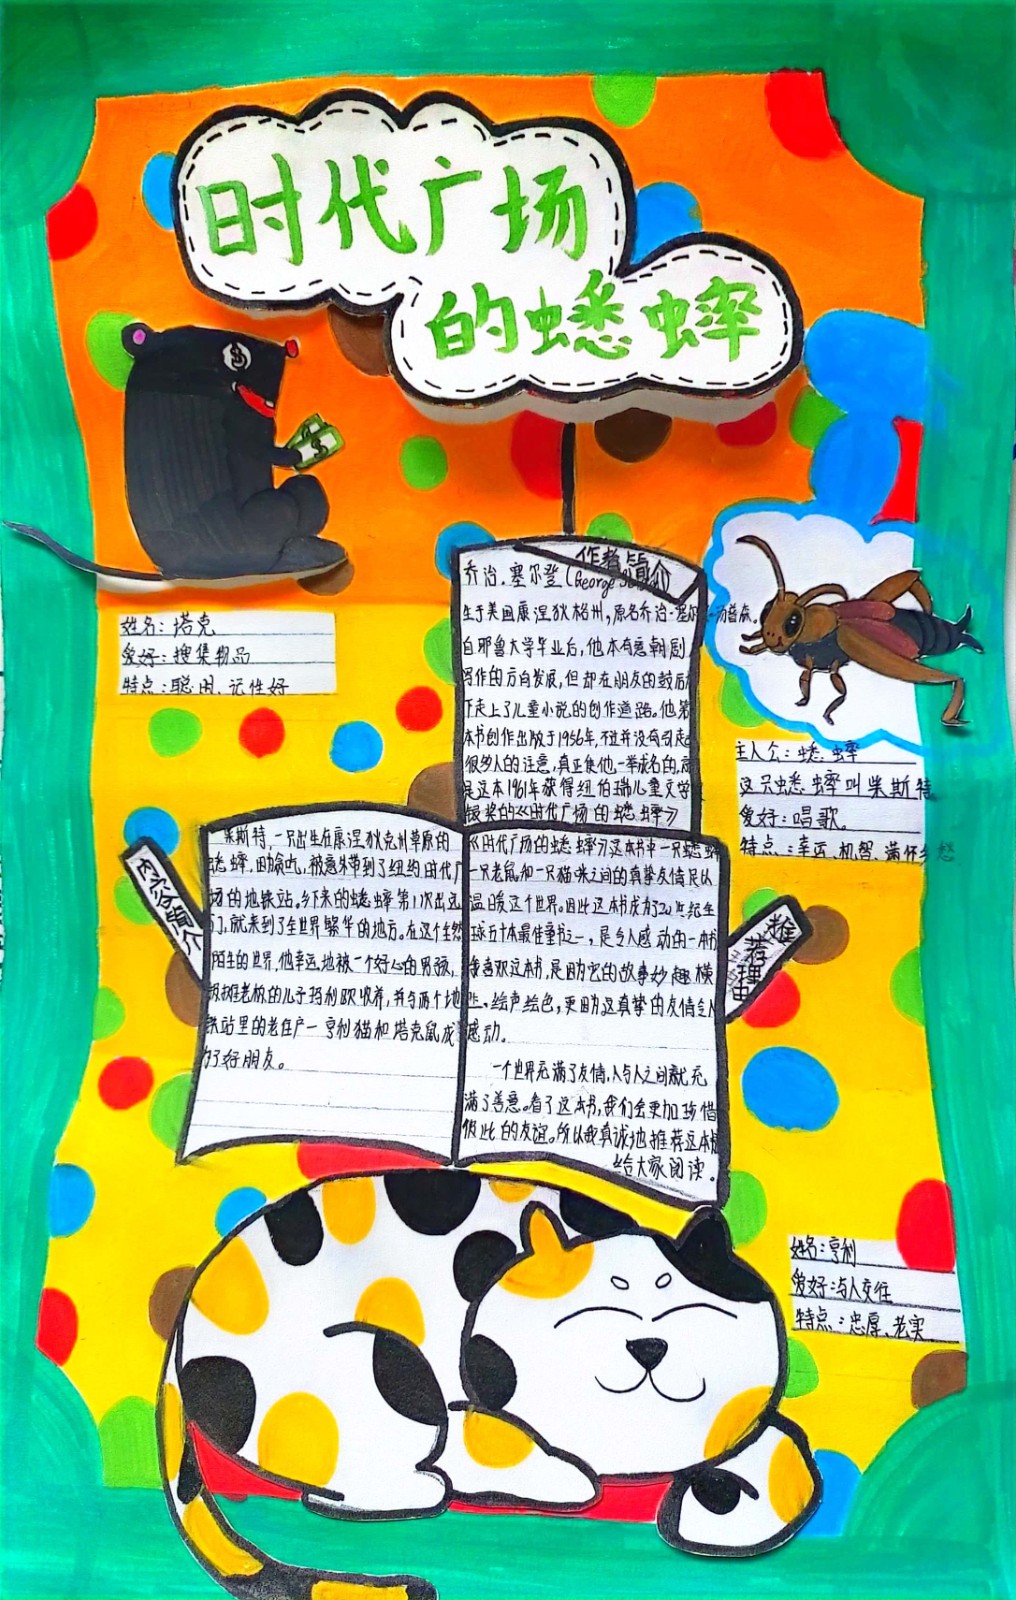 时代广场
的蟋蟀
姓名：塔克
爱好：搜集物品
特点：聪明、记性好
作者简介
乔治.塞尔登(George
生于美国康涅狄格州，原名乔治·塞尔 汤普森。
自耶鲁大学毕业后，他本有意朝剧
写作的方向发展，但却在朋友的鼓励
下走上了儿童小说的创作道路。他第
本书创作出版于1956年，不过并没有引起
很多人的注意，真正使他一举成名的，
是这本1961年获得纽伯瑞儿童文学
银奖的《时代广场的蟋蟀》
主人公：蟋蟀
这只蟋蟀叫柴斯特
爱好：唱歌。
特点：幸运、机智、满怀乡愁
内容简介
柴斯特，一只出生在康涅狄克州草原的
蟋蟀，因贪吃，被意外带到了纽约时代广
场的地铁站。乡下来的蟋蟀第1次出远
门，就来到了全世界繁华的地方。在这个全然
陌生的世界，他幸运地被一个好心的男孩，
报摊老板的儿子玛利欧收养，并与两个地
铁站里的老住户一亨利猫和塔克鼠成
为了好朋友。
推荐理由
《时代广场的蟋蟀》这本书中一只蟋蟀
一只老鼠和一只猫咪之间的真挚友情足以
温暖这个世界。因此这本书成为了20世纪全
球五十本最佳童书之一，是令人感动的一本书
我喜欢这本书，是因为它的故事妙趣横
生、绘声绘色，更因为这真挚的友情令人
感动。
一个世界充满了友情，人与人之间就充
满了善意。看了这本书，我们会更加珍惜
彼此的友谊。所以我真诚地推荐这本书
给大家阅读。
姓名：亨利
爱好：与人交往
特点：忠厚、老实